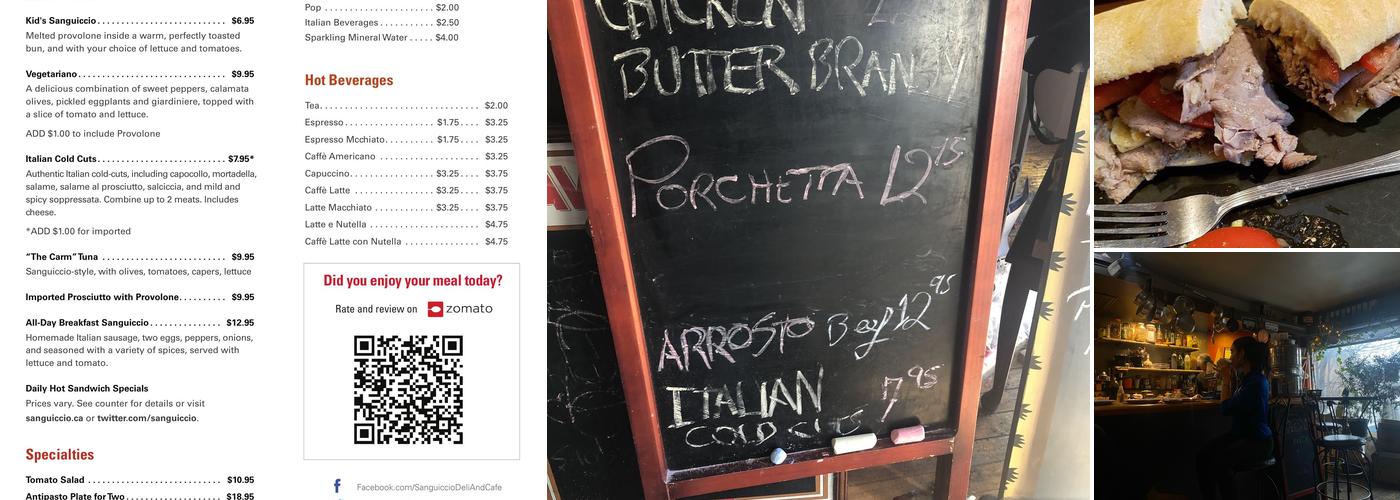 Kid's Sanguiccio.............................. $6.95
Melted provolone inside a warm, perfectly toasted
bun, and with your choice of lettuce and tomatoes.
Vegetariano.................................. $9.95
A delicious combination of sweet peppers, calamata
olives, pickled eggplants and giardiniere, topped with
a slice of tomato and lettuce.
ADD $1.00 to include Provolone
Italian Cold Cuts.............................. $7.95*
Authentic Italian cold-cuts, including capocollo, mortadella,
salame, salame al prosciutto, salciccia, and mild and
spicy soppressata. Combine up to 2 meats. Includes
cheese.
*ADD $1.00 for imported
“The Carm” Tuna ............................ $9.95
Sanguiccio-style, with olives, tomatoes, capers, lettuce
Imported Prosciutto with Provolone.......... $9.95
All-Day Breakfast Sanguiccio................ $12.95
Homemade Italian sausage, two eggs, peppers, onions,
and seasoned with a variety of spices, served with
lettuce and tomato.
Daily Hot Sandwich Specials
Prices vary. See counter for details or visit
sanguiccio.ca or twitter.com/sanguiccio.
Specialties
Tomato Salad ............................... $10.95
Antipasto Plate for Two....................... $18.95
Pop ...................... $2.00
Italian Beverages ........... $2.50
Sparkling Mineral Water ..... $4.00
Hot Beverages
Tea.................................... $2.00
Espresso .................... $1.75.... $3.25
Espresso Mcchiato.......... $1.75.... $3.25
Caffè Americano ....................... $3.25
Capuccino................... $3.25.... $3.75
Caffè Latte .................. $3.25.... $3.75
Latte Macchiato ............ $3.25.... $3.75
Latte e Nutella ......................... $4.75
Caffè Latte con Nutella ................. $4.75
Did you enjoy your meal today?
Rate and review on zomato
Facebook.com/SanguiccioDeliAndCafe
CHICKEN
BUTTER BRANDY
PORCHETTA 12 95
ARROSTO Beef 12 95
ITALIAN 7 95
COLD CUTS